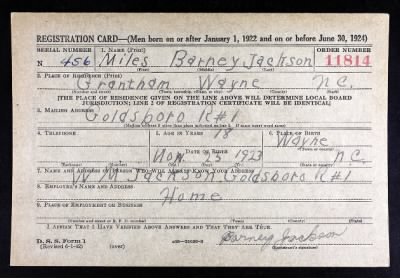 REGISTRATION CARD—(Men born on or after January 1, 1922 and on or before June 30, 1924)
SERIAL NUMBER 1. NAME (Print) ORDER NUMBER
N 456 Miles Barney Jackson 11814
(First) (Middle) (Last)
2. PLACE OF RESIDENCE (Print)
Grantham Wayne N.C.
(Number and street) (Town, township, village, or city) (County) (State)
[THE PLACE OF RESIDENCE GIVEN ON THE LINE ABOVE WILL DETERMINE LOCAL BOARD
JURISDICTION; LINE 2 OF REGISTRATION CERTIFICATE WILL BE IDENTICAL]
3. MAILING ADDRESS
Goldsboro R#1
[Mailing address if other than place indicated on line 2. If same insert word same]
4. TELEPHONE 5. AGE IN YEARS 6. PLACE OF BIRTH
18 Wayne
DATE OF BIRTH (Town or county)
Nov. 25 1923 N.C.
(Exchange) (Number) (Mo.) (Day) (Yr.) (State or country)
7. NAME AND ADDRESS OF PERSON WHO WILL ALWAYS KNOW YOUR ADDRESS
Jackson Goldsboro R#1
8. EMPLOYER'S NAME AND ADDRESS
Home
9. PLACE OF EMPLOYMENT OR BUSINESS
(Number and street or R. F. D. number) (Town) (County) (State)
I AFFIRM THAT I HAVE VERIFIED ABOVE ANSWERS AND THAT THEY ARE TRUE.
D. S. S. Form 1
(Revised 6-1-42) (over) Barney Jackson
(Registrant's signature)